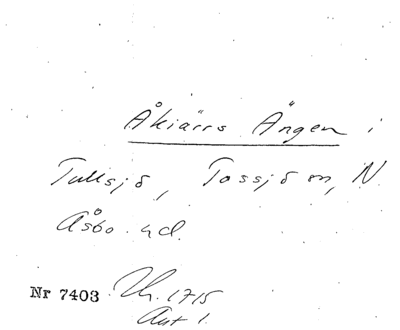 Åkiärrs Ängen i
Tullsjö, Tossjö sn, N.
Åsbo hd.
Nr 7403 Jb. 1715
Ant 1.